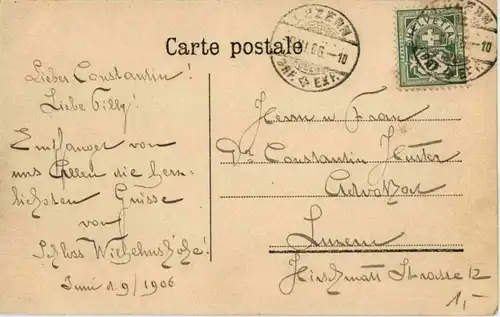 Carte postale
LUZERN
VI.06.-10
BRF. EXP.
HELVETIA
Lieber Constantin!
Liebe Tilly!
Empfanget von
uns Allen die herz-
lichsten Grüsse
vom
Schloss Wilhelmshöhe!
Juni 19/1906
Herrn u Frau
Dr Constantin
Advokat
Luzern
Hirschmatt Strasse 12
1,-